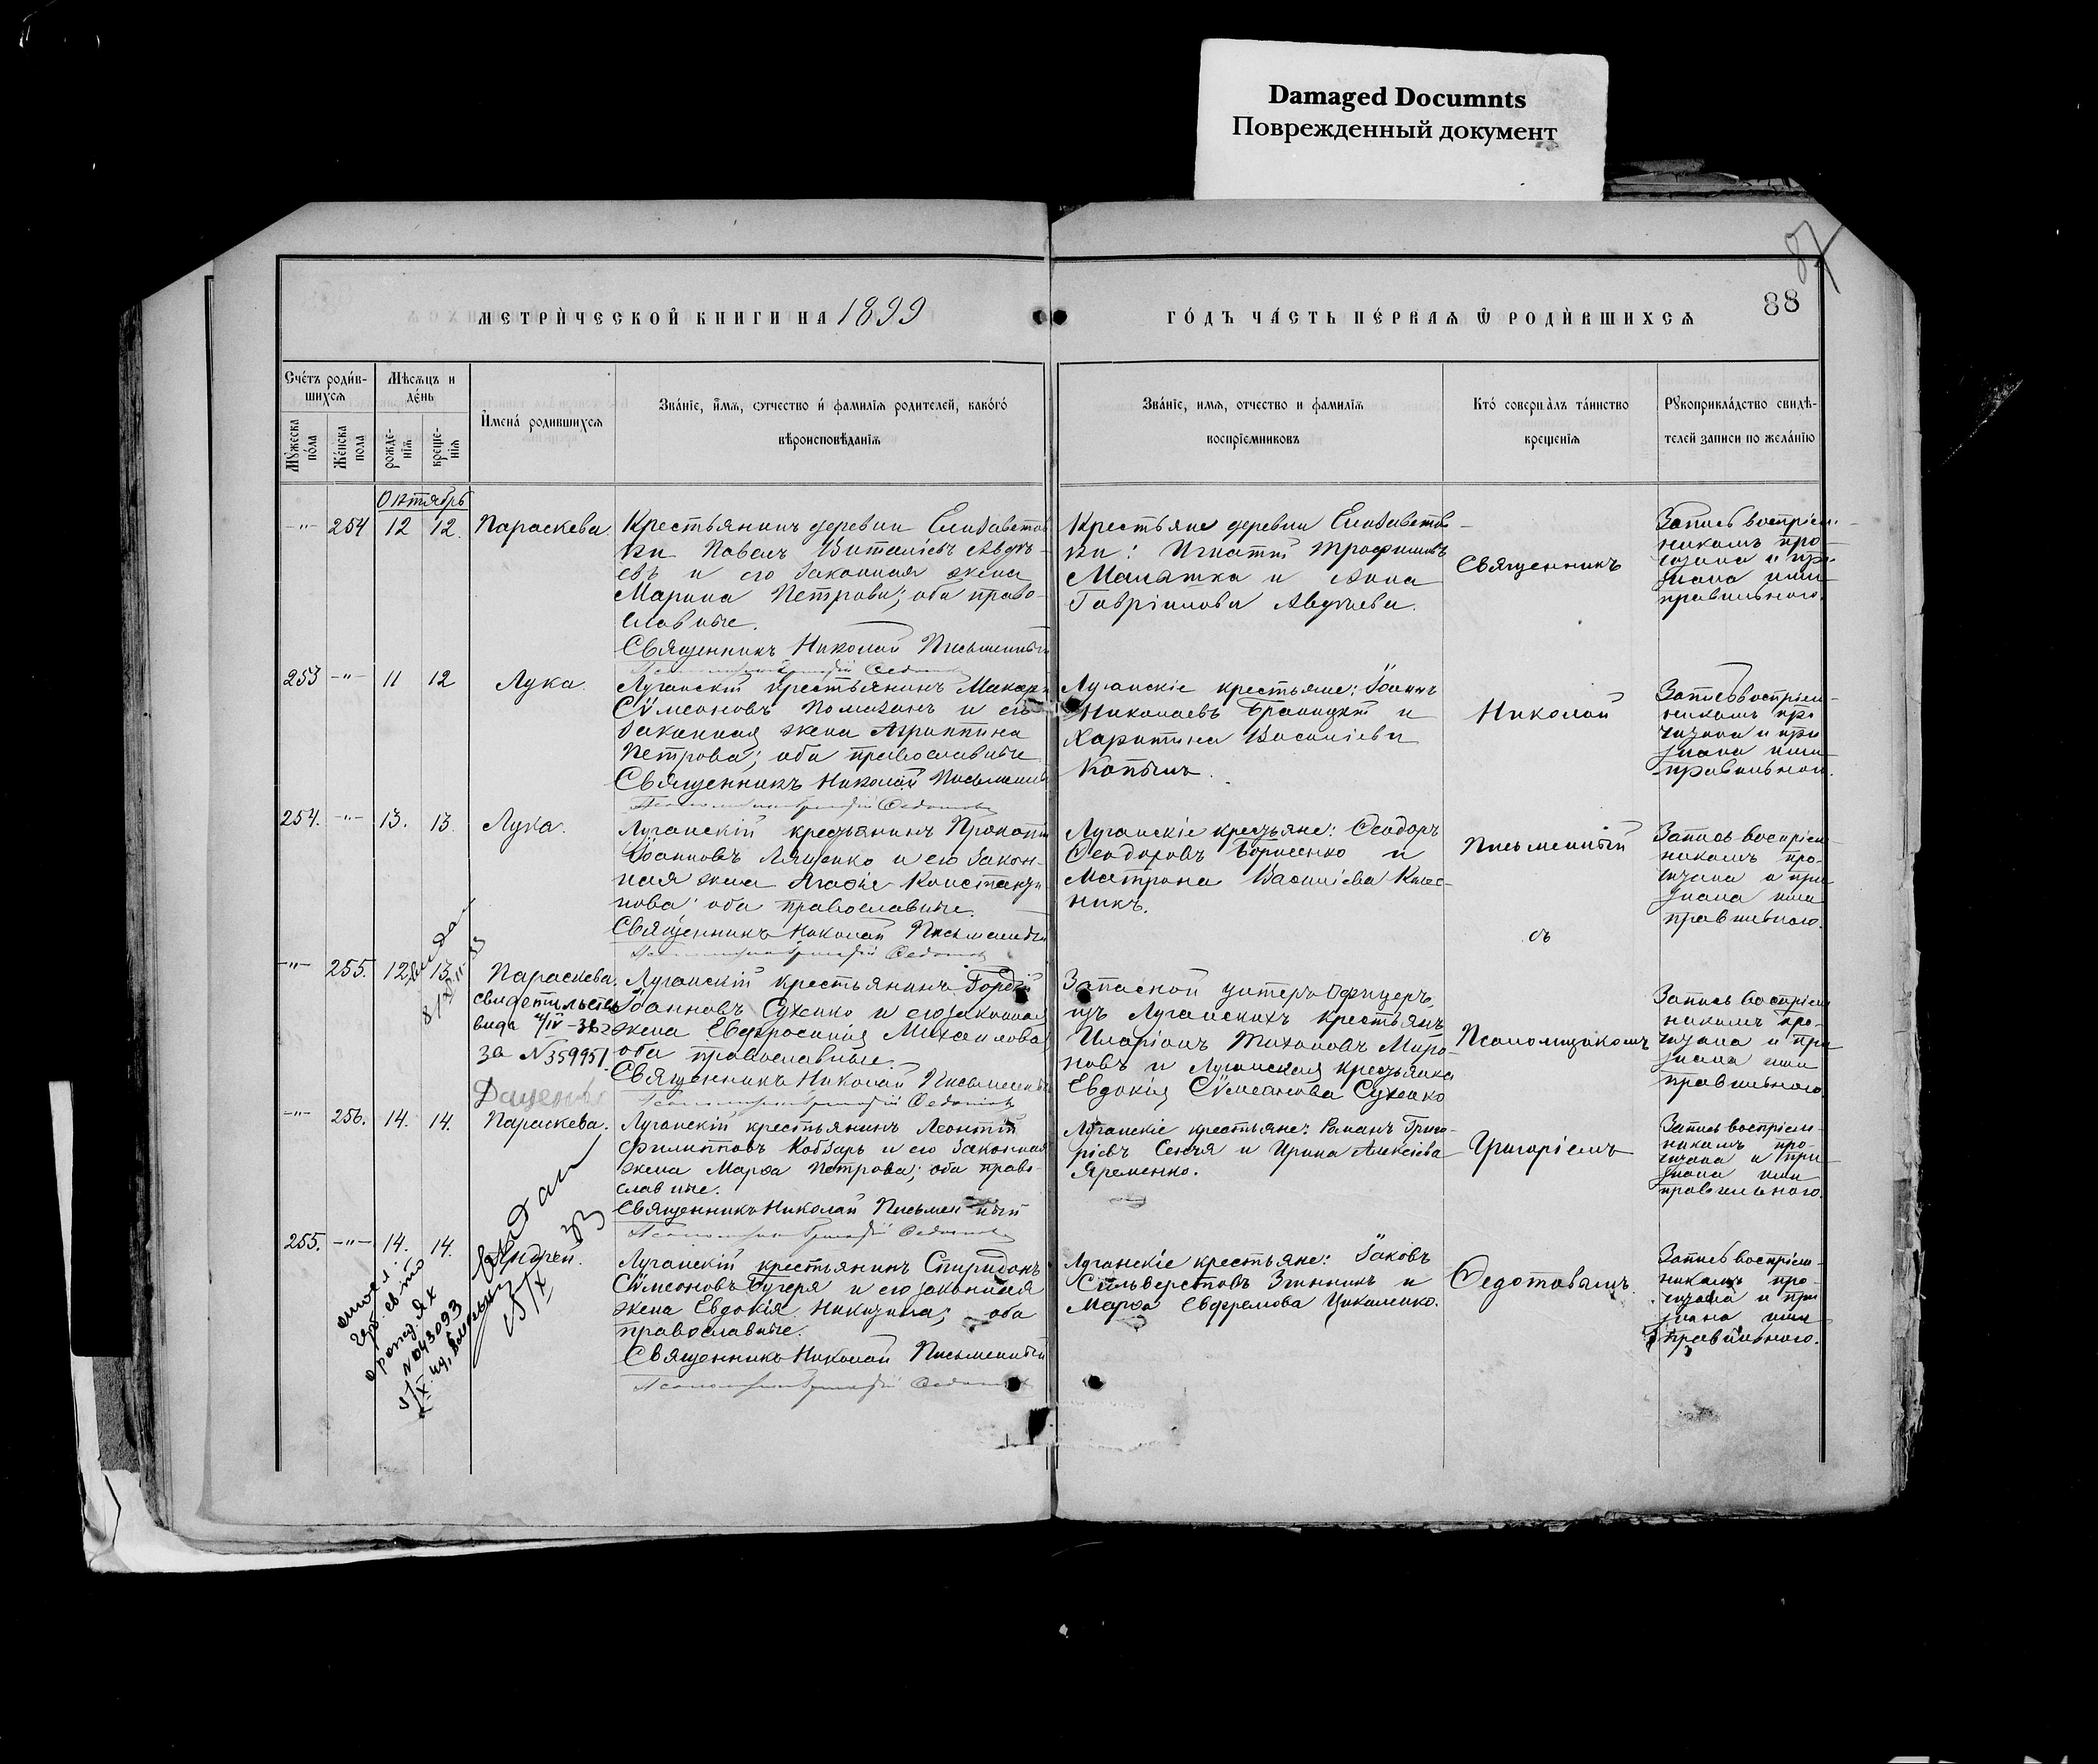 Damaged Documnts
Поврежденный документ
87
88
МЕТРИ́ЧЕСКОЙ КНИГИ НА 1899
ГО́ДЪ ЧА́СТЬ ПЕ́РВАѦ Ѡ РОДИ́ВШИХСѦ
Сче́тъ роди́в-
шихсѧ
Мѣсѧцъ и
де́нь
Мꙋ́жеска
по́ла
Же́нска
пола
рожде-
нїѧ
креще-
нїѧ
И҆мена́ родившихсѧ
Зва́нїе, и҆́мѧ, ѻтчество и҆ фамилїѧ родителей, како́гѡ
вѣроисповѣ́данїѧ
Зва́нїе, имѧ, отче́ство и фамилїѧ
воспрїемниковъ
Кто́ соверша́лъ та́инство
крещенїѧ
Рꙋкоприкла́дство свидѣ-
телей записи по жела́нїю
Октябрь
-"- 254 12 12. Параскева.
Крестьянинъ деревни Елисаветов
ки Павелъ Виталіевъ Авдѣ-
евъ и его законная жена
Марина Петрова; оба право-
славные.
Священникъ Николай Письменный
Крестьяне деревни Елисаветов-
ки: Игнатій Трофимовъ
и Анна
Гавріилова Авдѣева.
Священникъ
Запись воспріем-
никамъ про-
читана и при-
знана ими
правильною.
253 -"- 11 12 Лука.
Луганскій крестьянинъ Макарій
Сѵмеоновъ Помазанъ и его
законная жена Агриппина
Петрова; оба православные
Священникъ Николай Письменный
Псаломщикъ Григорій Федотовъ
Луганскіе крестьяне: Іоаннъ
Николаевъ и
Харитина Василіева
Николай
Запись воспріем-
никамъ про
читана и при
знана ими
правильной.
254. -"- 13. 13. Лука.
Луганскій крестьянинъ Прокопій
Іоанновъ Ляшенко и его закон-
ная жена Агафія Константи
нова; оба православные.
Священникъ Николай Письменный
Псаломщикъ Григорій Федотовъ
Луганскіе крестьяне: Ѳеодоръ
Ѳеодоровъ Борисенко и
Матрона Василіева
никъ.
Письменный
съ
Запись воспріем
никамъ про-
читана и при
знана ими
правильною.
-"- 255. 12. 13. Параскева.
свидетельство
за № 359951
Даценко
Луганскій крестьянинъ Гордій
Іоанновъ Сухенко и его законная
жена Евфросинія Михаилова;
оба православные.
Священникъ Николай Письменный
Псаломщикъ Григорій Федотовъ
Запасной унтеръ-офицеръ,
изъ Луганскихъ крестьянъ
Иларіонъ Тихоновъ Миро-
новъ и Луганская крестьянка
Евдокія Сѵмеонова Сухенко
Псаломщикомъ
Запись воспріем
никамъ про-
читана и при
знана ими
правильною.
-"- 256. 14. 14. Параскева.
Луганскій крестьянинъ Леонтій
Филипповъ Кобзарь и его законная
жена Марѳа Петрова; оба право-
славные.
Священникъ Николай Письменный
Псаломщикъ Григорій Федотовъ
Луганскіе крестьяне: Романъ Григо-
ріевъ и Ирина Алексіева
Яременко.
Григоріемъ
Запись воспріем-
никамъ про-
читана и при
знана ими
правильною.
255. -"- 14. 14. Андрей.
№ 043093
Луганскій крестьянинъ Спиридонъ
Сѵмеоновъ Бугеря и его законная
жена Евдокія Никитина; оба
православные.
Священникъ Николай Письменный
Псаломщикъ Григорій Федотовъ
Луганскіе крестьяне: Іаковъ
Сильверстовъ и
Марѳа Евфремова Цикаленко.
Ѳедотовымъ.
Запись воспріем-
никамъ про-
читана и при
знана ими
правильною.